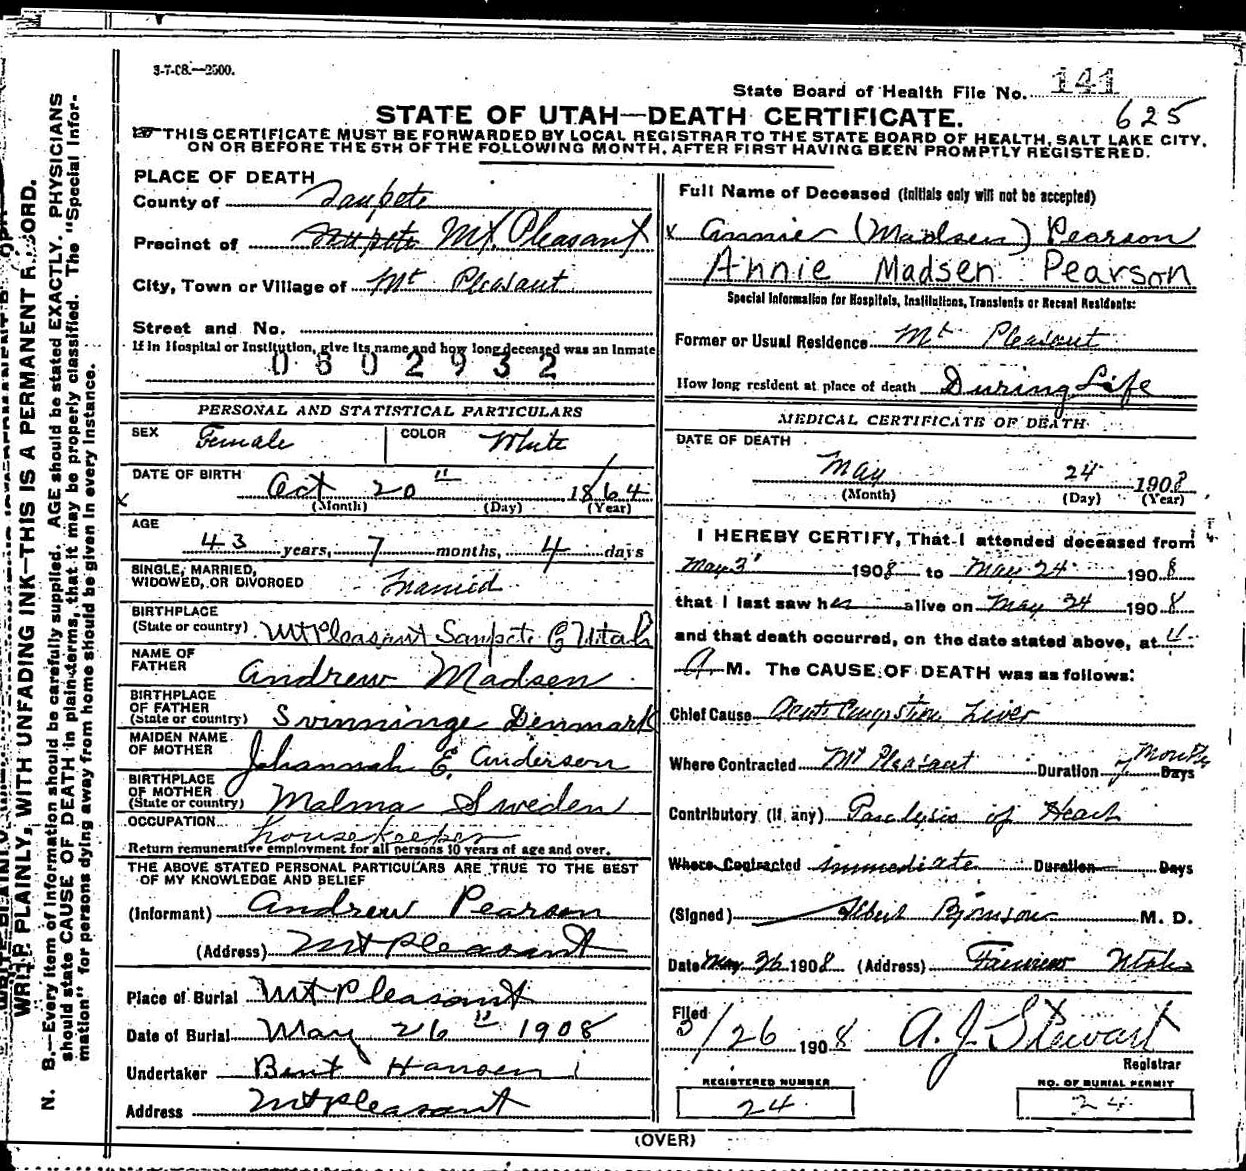 3-7-08.—2500.
State Board of Health File No. 141
625
STATE OF UTAH—DEATH CERTIFICATE.
THIS CERTIFICATE MUST BE FORWARDED BY LOCAL REGISTRAR TO THE STATE BOARD OF HEALTH, SALT LAKE CITY,
ON OR BEFORE THE 5TH OF THE FOLLOWING MONTH, AFTER FIRST HAVING BEEN PROMPTLY REGISTERED.
PLACE OF DEATH
County of Sanpete
Precinct of Sanpete Mt. Pleasant
City, Town or Village of Mt Pleasant
Street and No.
If in Hospital or Institution, give its name and how long deceased was an Inmate
0602932
PERSONAL AND STATISTICAL PARTICULARS
SEX Female COLOR White
DATE OF BIRTH Oct 20" 1864
(Month) (Day) (Year)
AGE
43 years, 7 months, 4 days
SINGLE, MARRIED,
WIDOWED, OR DIVORCED Married
BIRTHPLACE
(State or country) Mt Pleasant Sanpete Co Utah
NAME OF
FATHER Andrew Madsen
BIRTHPLACE
OF FATHER
(State or country) Svinninge Denmark
MAIDEN NAME
OF MOTHER Johannah E. Anderson
BIRTHPLACE
OF MOTHER
(State or country) Malma Sweden
OCCUPATION housekeeper
Return remunerative employment for all persons 10 years of age and over.
THE ABOVE STATED PERSONAL PARTICULARS ARE TRUE TO THE BEST
OF MY KNOWLEDGE AND BELIEF
(Informant) Andrew Pearson
(Address) Mt Pleasant
Place of Burial Mt Pleasant
Date of Burial May 26" 1908
Undertaker Bent Hansen
Address Mt Pleasant
Full Name of Deceased (Initials only will not be accepted)
x Annie (Madsen) Pearson
Annie Madsen Pearson
Special Information for Hospitals, Institutions, Transients or Recent Residents:
Former or Usual Residence Mt Pleasant
How long resident at place of death During Life
MEDICAL CERTIFICATE OF DEATH
DATE OF DEATH
May 24 1908
(Month) (Day) (Year)
I HEREBY CERTIFY, That I attended deceased from
May 3 1908 to May 24 1908
that I last saw her alive on May 24 1908
and that death occurred, on the date stated above, at 4
A M. The CAUSE OF DEATH was as follows:
Chief Cause Acute Congestion Liver
Where Contracted Mt Pleasant Duration Months Days
Contributory (if any) Paralysis of Heart
Where Contracted immediate Duration Days
(Signed) Albert Bjornson M. D.
Date May 26 1908 (Address) Fairview Utah
Filed
5/26 1908 A. J. Stewart
Registrar
REGISTERED NUMBER
24
NO. OF BURIAL PERMIT
24
(OVER)
WRITE PLAINLY, WITH UNFADING INK—THIS IS A PERMANENT RECORD.
N. B.—Every item of information should be carefully supplied. AGE should be stated EXACTLY. PHYSICIANS
should state CAUSE OF DEATH in plain terms, that it may be properly classified. The "Special Infor-
mation" for persons dying away from home should be given in every instance.